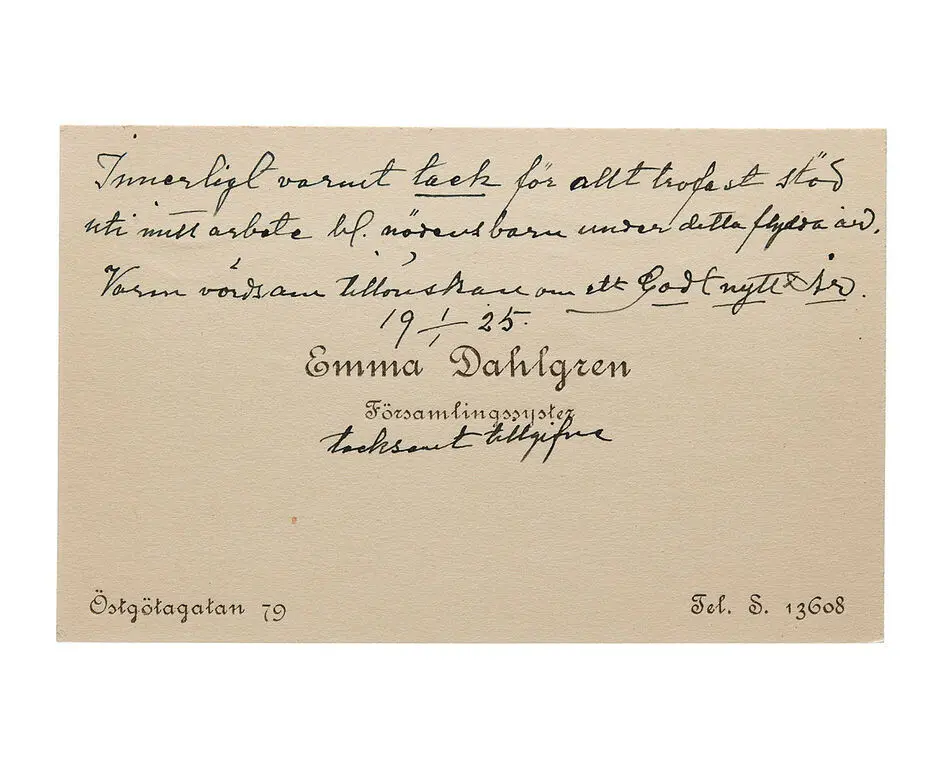 Innerligt varmt tack för allt trofast stöd
uti mitt arbete bl. nödens barn under detta flydda år.
Varm vördsam tillönskan om ett Godt nytt År.
19 1/1 25.
Emma Dahlgren
Församlingssyster
tacksamt tillgifna
Östgötagatan 79 Tel. S. 13608